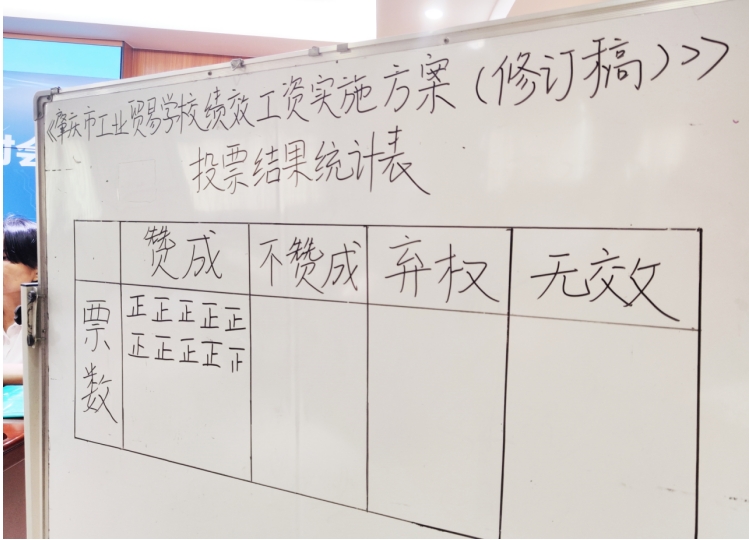 《肇庆市工业贸易学校绩效工资实施方案(修订稿)》
投票结果统计表
赞成 不赞成 弃权 无效
票数 正正正正正
正正正正